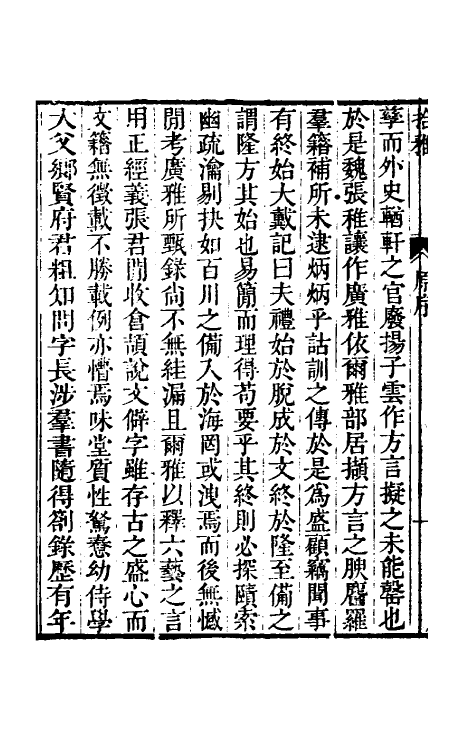 拾雅 原序
孳而外史輶軒之官廢揚子雲作方言擬之未能罄也
於是魏張稚讓作廣雅依爾雅部居擷方言之腴羅
羣籍補所未逮炳炳乎詁訓之傳於是爲盛顧竊聞事
有終始大戴記曰夫禮始於脫成於文終於隆至備之
謂隆方其始也易簡而理得苟要乎其終則必探賾索
幽疏瀹剔抉如百川之備入於海罔或洩焉而後無憾
閒考廣雅所甄錄尙不無絓漏且爾雅以釋六藝之言
用正經義張君閒收倉頡說文僻字雖存古之盛心而
文籍無徵載不勝載例亦懵焉味堂質性駑惷幼侍學
人父鄉賢府君粗知問字長涉羣書隨得劄錄歷有年